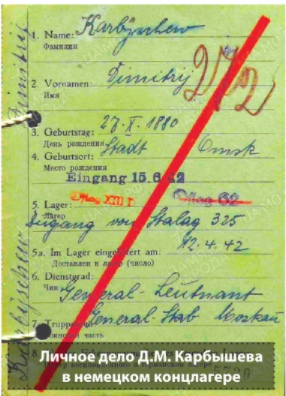 1. Name: Karbyschew
Фамилия
2. Vornamen: Dimitrij
Имя
3. Geburtstag: 27. X. 1880
День рождения
4. Geburtsort: Stadt Omsk
Место рождения
Eingang 15.6.42
5. Lager: Oflag XIII Oflag 62
Лагерь
Zugang von Stalag 325
5a. Im Lager eingeliefert am: 12.4.42
Доставлен в лагерь (число)
6. Dienstgrad: General-Leutnant
Чин
7. Truppen
General Stab Moskau
часть
8.
Личное дело Д.М. Карбышева
в немецком концлагере